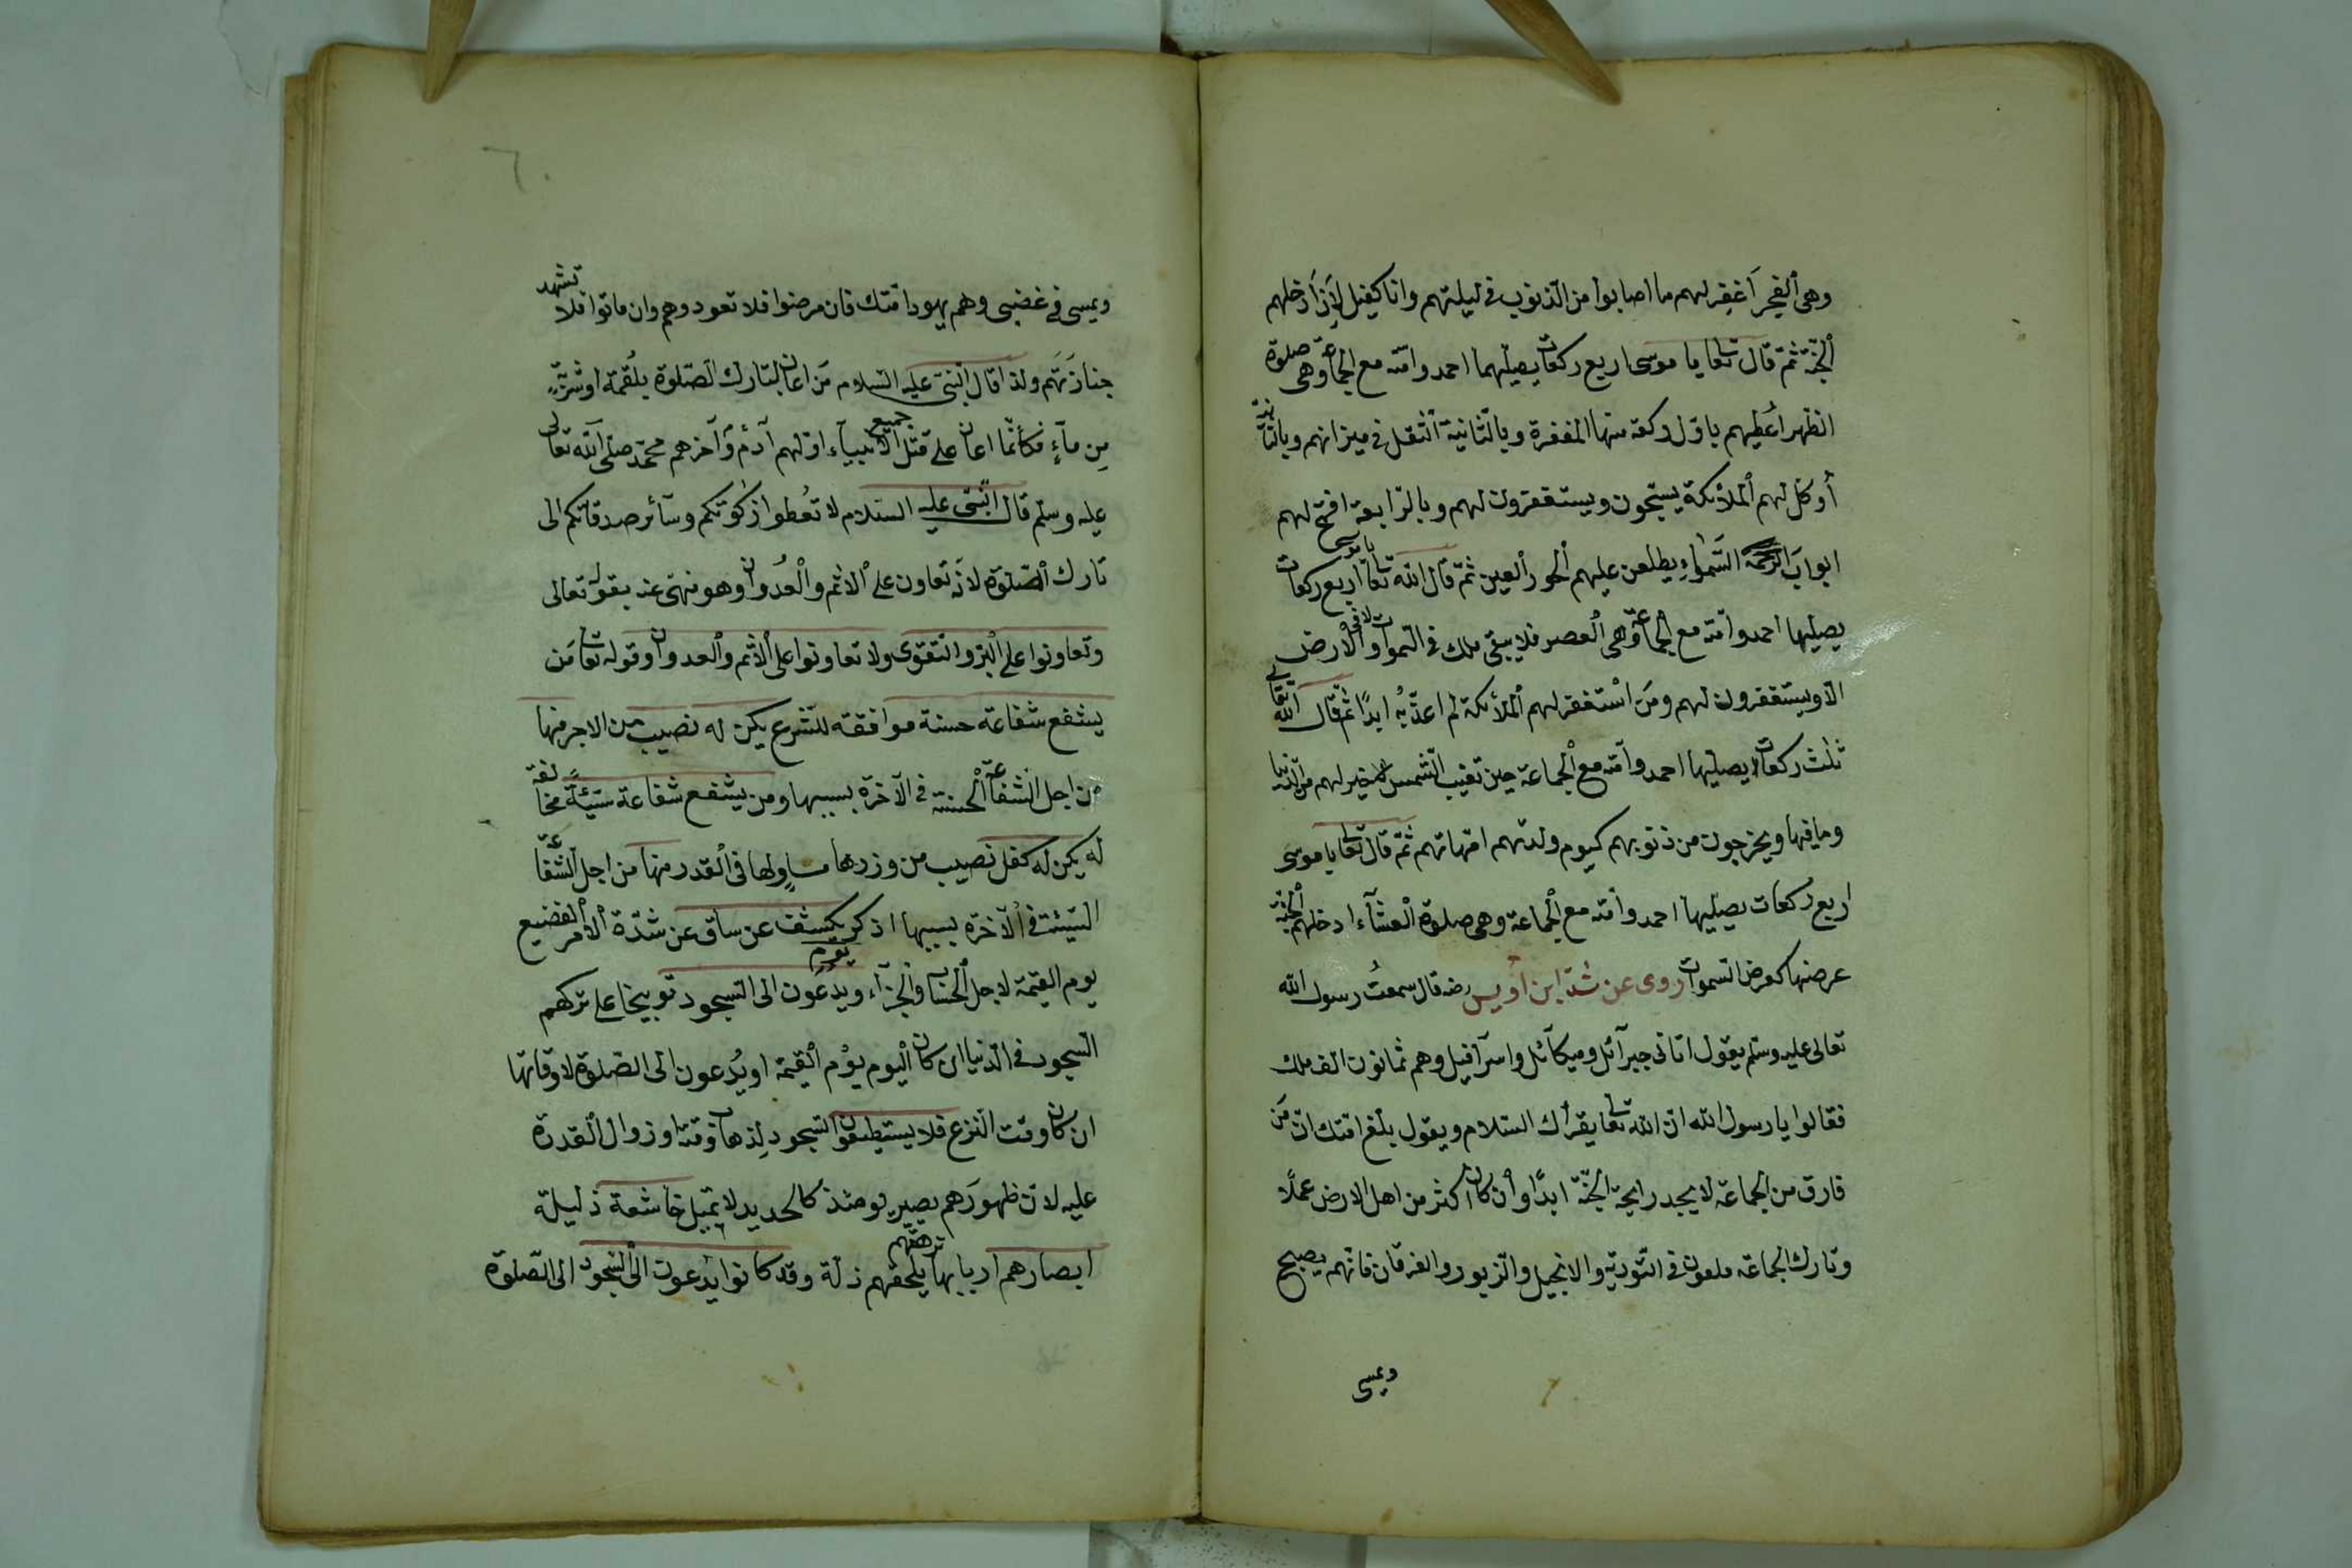 وهى الفجر اغفر لهم ما اصابوا من الذنوب فى ليلتهم وانا كفيل لان ادخلهم
الجنة ثم قال تعا يا موسى اربع ركعات يصليهما احمد وامته مع الجماعة وهى صلوة
الظهر اعطيهم باول ركعة منها المغفرة وبالثانية اثقل فى ميزانهم وبالثالثة
أوكل لهم الملائكة يسبحون ويستغفرون لهم وبالرابعة افتح لهم
ابواب السموات ويطلعن عليهم الحور العين ثم قال الله تعا يا موسى اربع ركعات
يصليها احمد وامته مع الجماعة وهى العصر فلا يبقى ملك فى السموات ولا فى الارض
الا ويستغفرون لهم ومن استغفر لهم الملائكة لم اعذبه ابدًا ثم قال الله تعالى
ثلث ركعات يصليها احمد وامته مع الجماعة حين تغيب الشمس خير لهم من الدنيا
وما فيها ويخرجون من ذنوبهم كيوم ولدتهم امهاتهم ثم قال تعا يا موسى
اربع ركعات يصليها احمد وامته مع الجماعة وهى صلوة العشاء ادخلهم الجنة
عرضها كعرض السموات روى عن شد ابن أويس رضه قال سمعت رسول الله
تعالى عليه وسلم يقول اتانى جبرآئل وميكآئل واسرآفيل وهم ثمانون الف ملك
فقالوا يا رسول الله ان الله تعا يقرأك السلام ويقول بلغ امتك ان من
فارق من الجماعة لا يجد رايحة الجنة ابدًا وان كان اكثر من اهل الارض عملًا
وتارك الجماعة ملعون فى التورية والانجيل والزبور والفرقان فانهم يصبح
ويمسى
٦
ويمسى فى غضبى وهم يهود امتك فان مرضوا فلا تعودوهم وان ماتوا فلا تشهد
جنازتهم ولذا قال النبى عليه السلام من اعان لتارك الصلوة بلقمة او شربة
من مآء فكأنما اعان على قتل جميع الانبيآء اولهم آدم وآخرهم محمد صلى الله تعالى
عليه وسلم قال النبى عليه السلام لا تعطوا زكوتكم وسآئر صدقاتكم الى
تارك الصلوة لانه تعاون على الاثم والعدوان وهو منهى عنه بقوله تعالى
وتعاونوا على البر والتقوى ولا تعاونوا على الاثم والعدوان وقوله تعا من
يشفع شفاعة حسنة موافقة للشرع يكن له نصيب من الاجر منها
من اجل الشفاعة الحسنة فى الآخرة بسببها ومن يشفع شفاعة سيئةً مخالفة
له يكن له كفل نصيب من وزرها مساولها فى القدر منها من اجل الشفاعة
السيئة فى الآخرة بسببها اذكر يوم يكشف عن ساق عن شدة الامر الفضيع
يوم القيمة لاجل الحساب والجزآء ويدعون الى السجود توبيخا على تركهم
السجود فى الدنيا ان كان اليوم يوم القيمة او يُدعون الى الصلوة لاوقاتها
ان كان وقت النزع فلا يستطيعون السجود لذهاب وقته او زوال القدرة
عليه لان ظهورهم يصير يومئذ كالحديد لا يميل خاشعة ذليلة
ابصارهم اربابها ترهقهم يلحقهم ذلة وقد كانوا يدعون الى السجود الى الصلوة